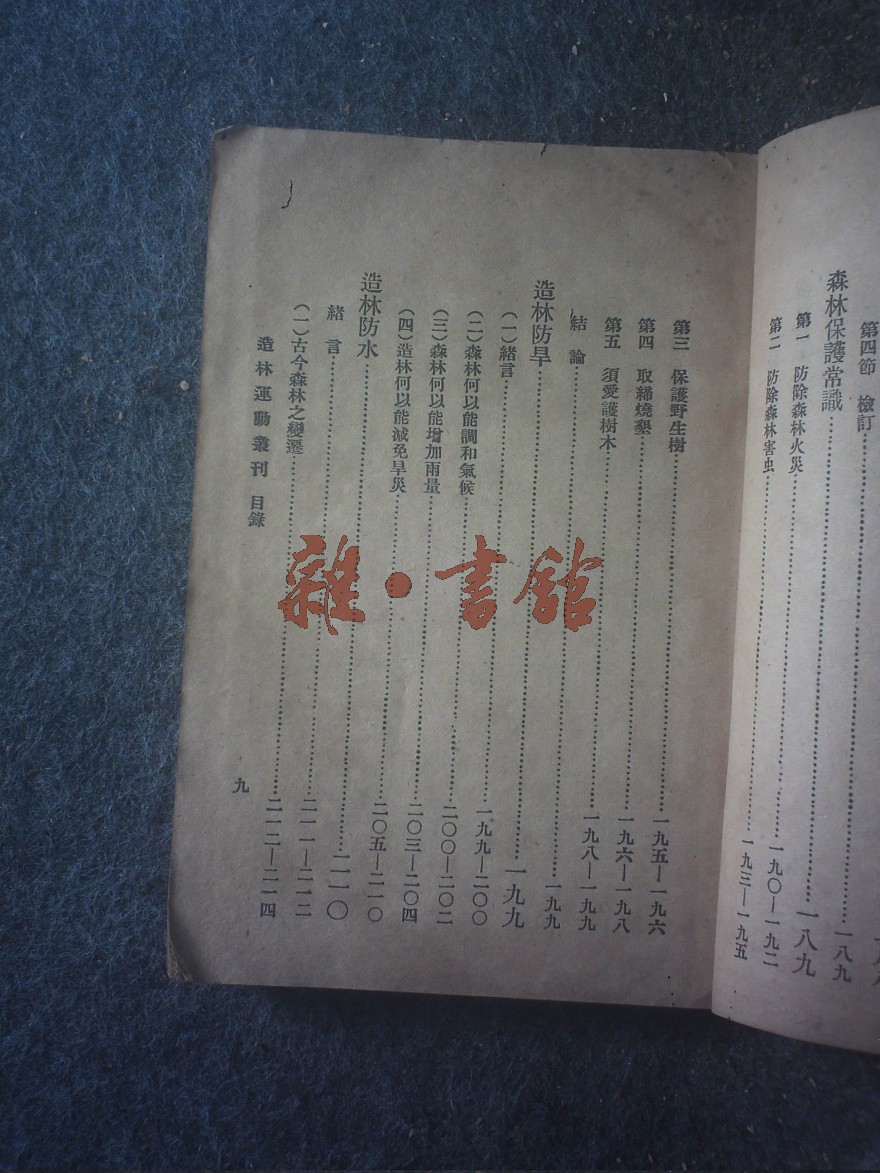 第四節 檢訂……一八九
森林保護常識……一八九
第一 防除森林火災……一九〇—一九二
第二 防除森林害虫……一九三—一九五
第三 保護野生樹……一九五—一九六
第四 取締燒墾……一九六—一九八
第五 須愛護樹木……一九八—一九九
結論……一九九
造林防旱……一九九
(一)緒言……一九九—二〇〇
(二)森林何以能調和氣候……二〇〇—二〇二
(三)森林何以能增加雨量……二〇三—二〇四
(四)造林何以能減免旱災……二〇五—二一〇
造林防水……二一〇
緒言……二一一—二一二
(一)古今森林之變遷……二一二—二一四
造林運動叢刊 目錄 九
雜·書館